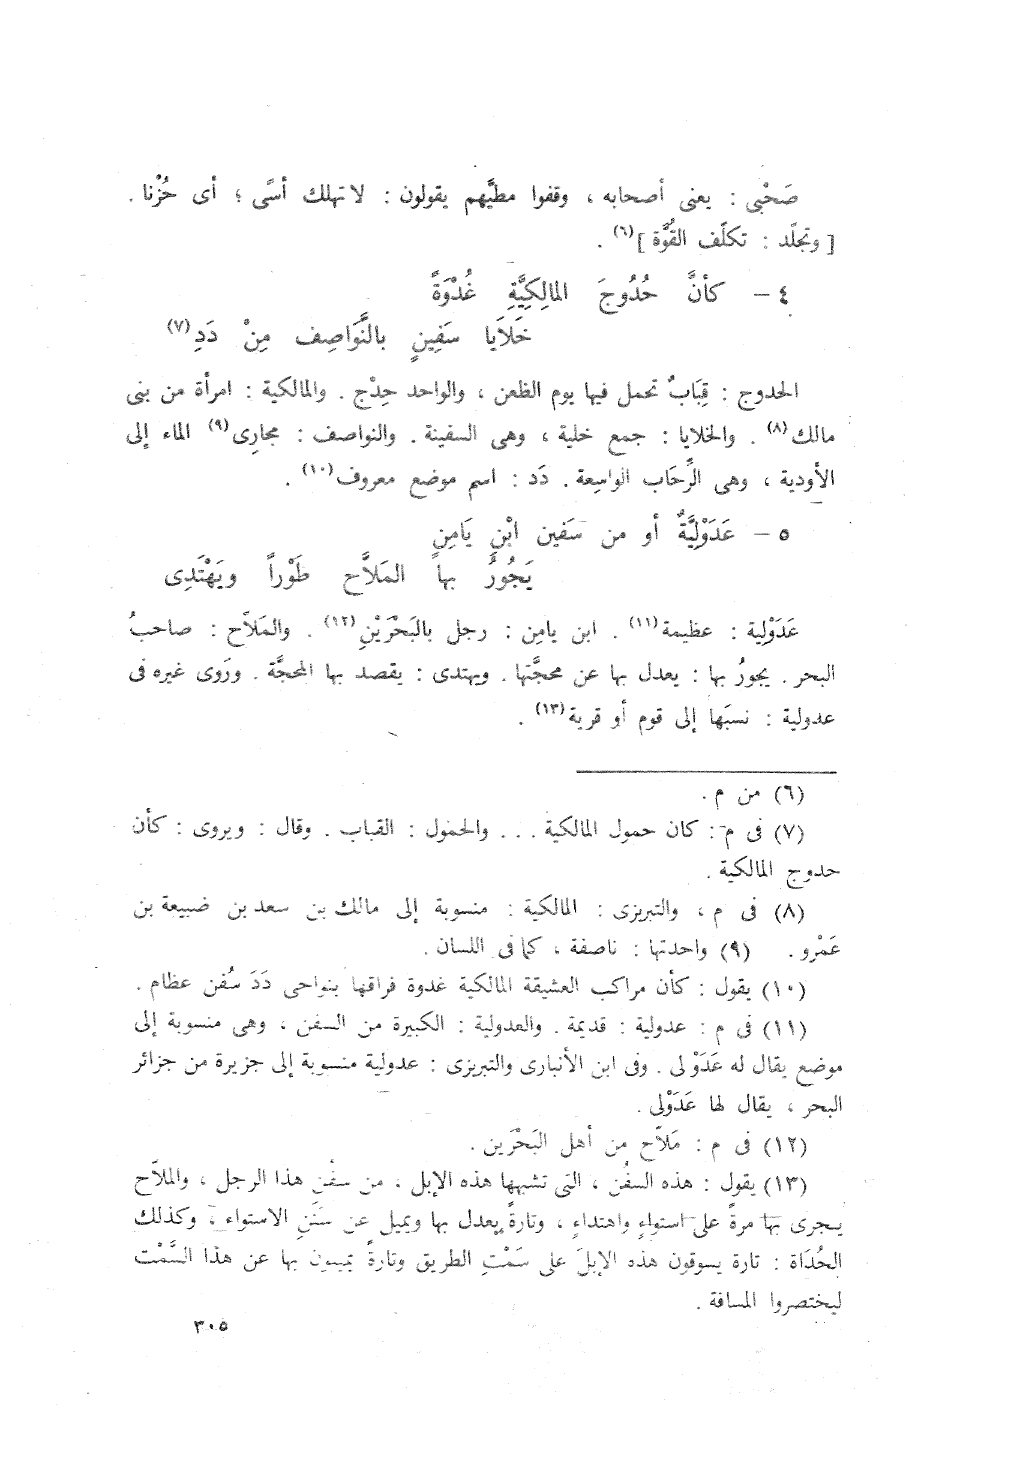 صَحْبِى : يعنى أصحابه ، وقفوا مطيَّهم يقولون : لا تهلك أسًى ؛ أى حُزْنا .
[ وتجلَّد : تكلَّف القُوَّة ](٦) .
٤ – كأنَّ حُدُوجَ المالِكِيَّةِ غُدْوَةً
خَلَايا سَفِينٍ بالنَّوَاصِف مِنْ دَدِ(٧)
الحدوج : قِبَابٌ تحمل فيها يوم الظعن ، والواحد حِدْج . والمالكية : امرأة من بنى
مالك(٨) . والخلايا : جمع خلية ، وهى السفينة . والنواصف : مجارِى(٩) الماء إلى
الأودية ، وهى الرِّحَاب الواسِعة . دَد : اسم موضع معروف(١٠) .
٥ – عَدَوْلِيَّةٌ أو من سَفين ابْنِ يَامِنٍ
يَجُورُ بها المَلاَّح طَوْراً ويَهْتَدِى
عَدَوْلِية : عظيمة(١١) . ابن يامِن : رجل بالبَحْرَيْنِ(١٢) . والمَلاَّح : صاحبُ
البحر . يجورُ بها : يعدل بها عن محجَّتها . ويهتدى : يقصد بها المحجَّة . ورَوى غيره فى
عدولية : نسبَها إلى قوم أو قرية(١٣) .
(٦) من م .
(٧) فى م : كان حمول المالكية . . . والحمول : القباب . وقال : ويروى : كأن
حدوج المالكية .
(٨) فى م ، والتبريزى : المالكية : منسوبة إلى مالك بن سعد بن ضبيعة بن
عَمْرو . (٩) واحدتها : ناصفة ، كما فى اللسان .
(١٠) يقول : كأن مراكب العشيقة المالكية غدوة فراقها بنواحى دَدَ سُفن عظام .
(١١) فى م : عدولية : قديمة . والعدولية : الكبيرة من السفن ، وهى منسوبة إلى
موضع يقال له عَدَوْلى . وفى ابن الأنبارى والتبريزى : عدولية منسوبة إلى جزيرة من جزائر
البحر ، يقال لها عَدَوْلى .
(١٢) فى م : مَلاَّح من أهل البَحْرَين .
(١٣) يقول : هذه السفُن ، التى تشبهها هذه الإبل ، من سفُن هذا الرجل ، والملاَّح
يجرى بها مرةً على استواءٍ واهتداءٍ ، وتارةً يعدل بها ويميل عن سَنَنِ الاستواء ، وكذلك
الحُدَاة : تارة يسوقون هذه الإبلَ على سَمْتِ الطريق وتارةً يميلون بها عن هذا السَّمْت
ليختصروا المسافة .
٣٠٥